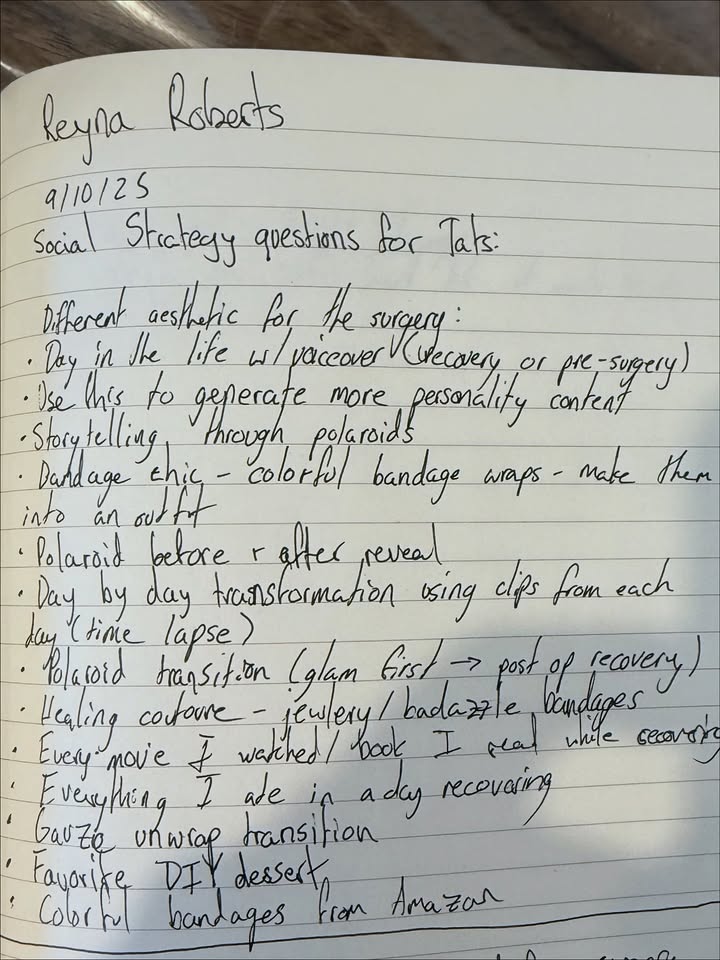 Reyna Roberts
9/10/25
Social Strategy questions for Tats:
Different aesthetic for the surgery:
• Day in the life w/voiceover (recovery or pre-surgery)
• Use this to generate more personality content
• Storytelling through polaroids
• Bandage chic - colorful bandage wraps - make them
into an outfit
• Polaroid before + after reveal
• Day by day transformation using clips from each
day (time lapse)
• Polaroid transition (glam first → post op recovery)
• Healing coutoure - jewlery/badazzle bandages
• Every movie I watched/book I read while recovering
• Everything I ate in a day recovering
• Gauze unwrap transition
• Favorite DIY dessert
• Colorful bandages from Amazon